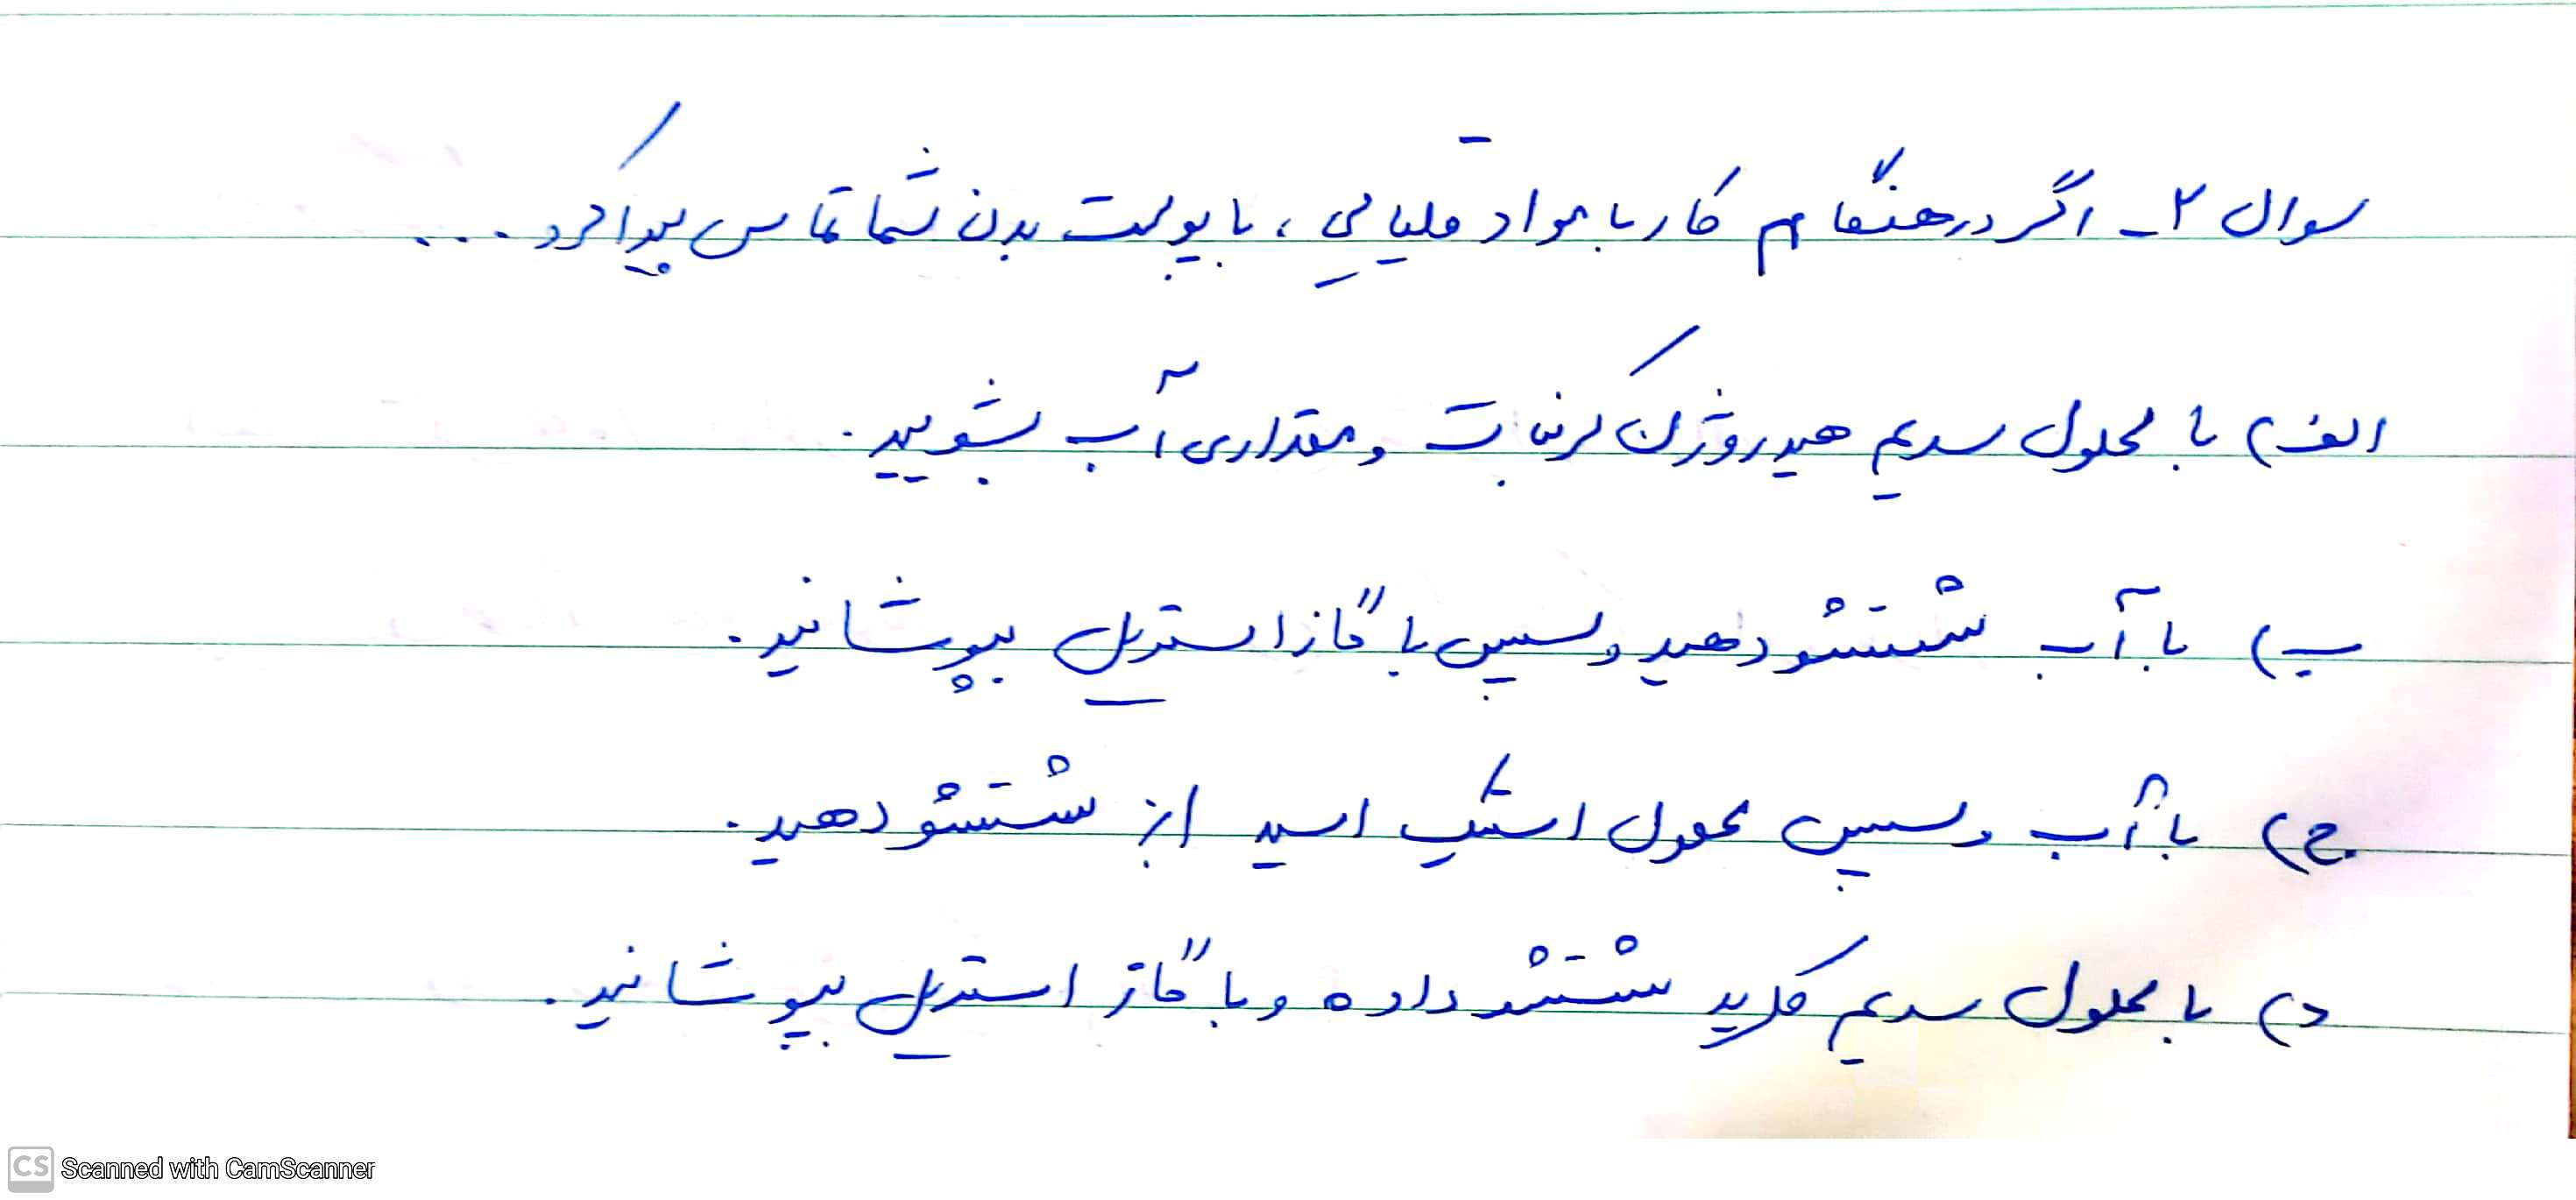 سوال ۲ـ اگر در هنگام کار با مواد قلیایی، با پوست بدن شما تماس پیدا کرد ...
الف) با محلول سدیم هیدروژن کربنات و مقداری آب بشویید.
ب) با آب شستشو دهید و سپس با گاز استریل بپوشانید.
ج) با آب و سپس محلول استیک اسید ۱٪ شستشو دهید.
د) با محلول سدیم کلرید شستشو داده و با گاز استریل بپوشانید.
CS Scanned with CamScanner